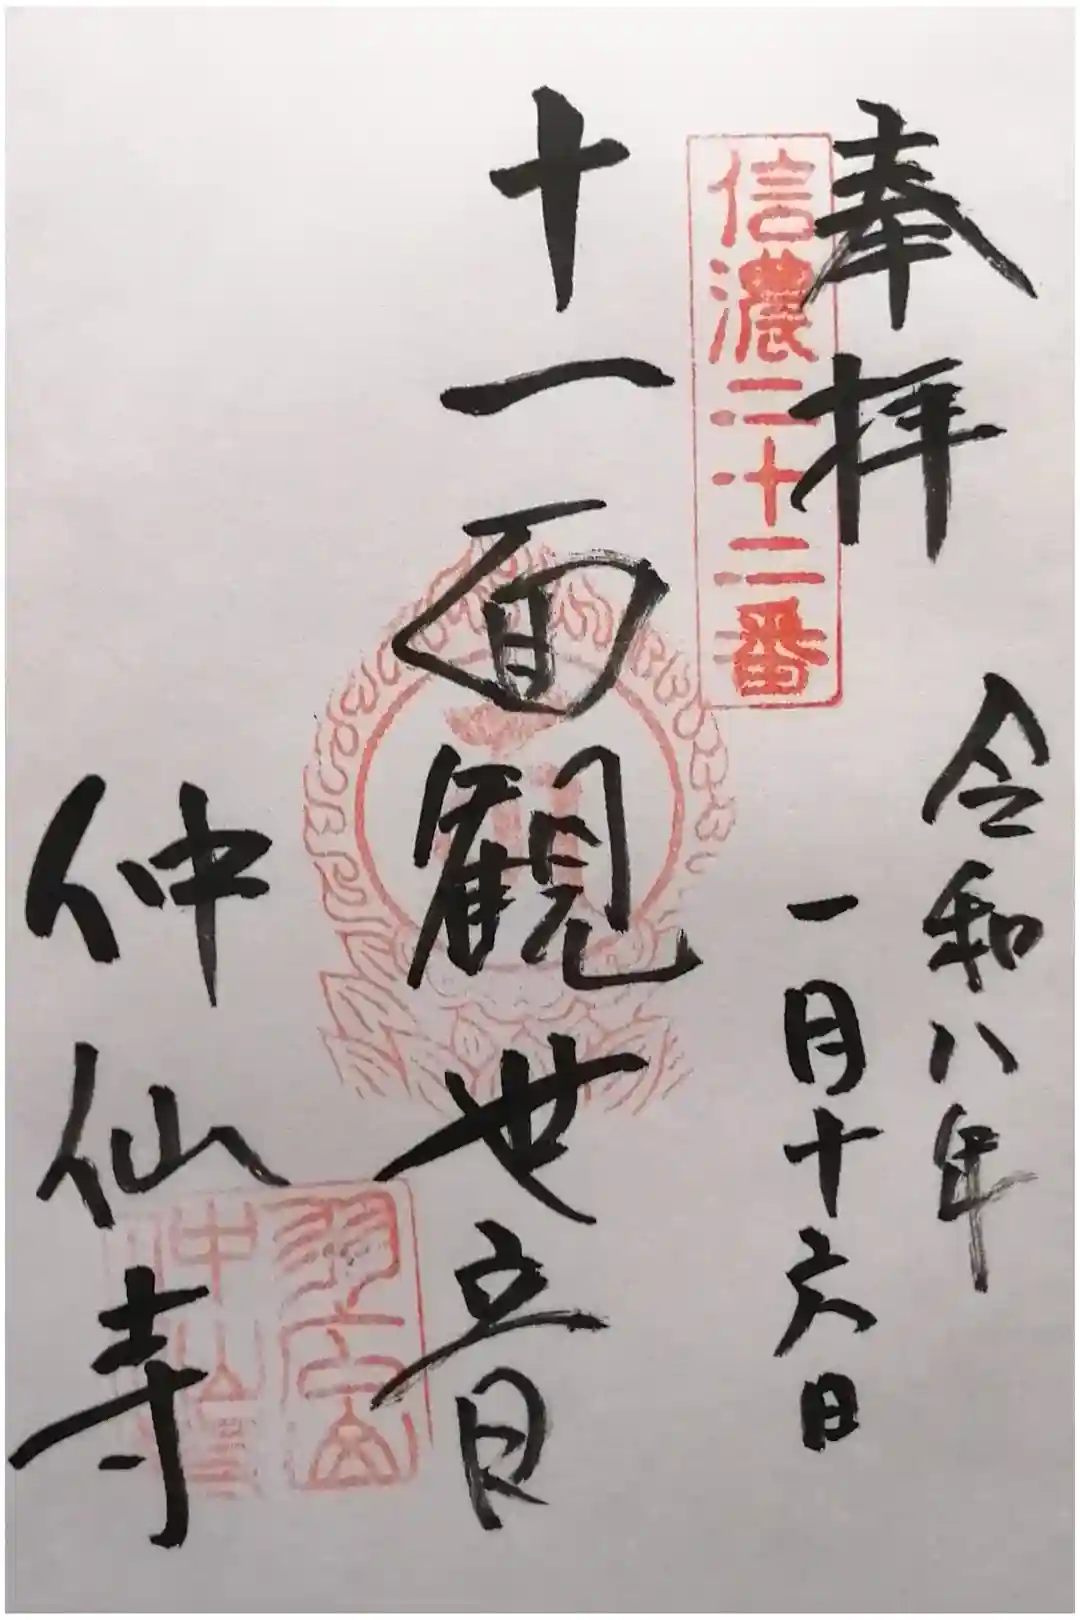 奉拝
令和八年
一月十六日
信濃二十二番
十一面観世音
仲仙寺